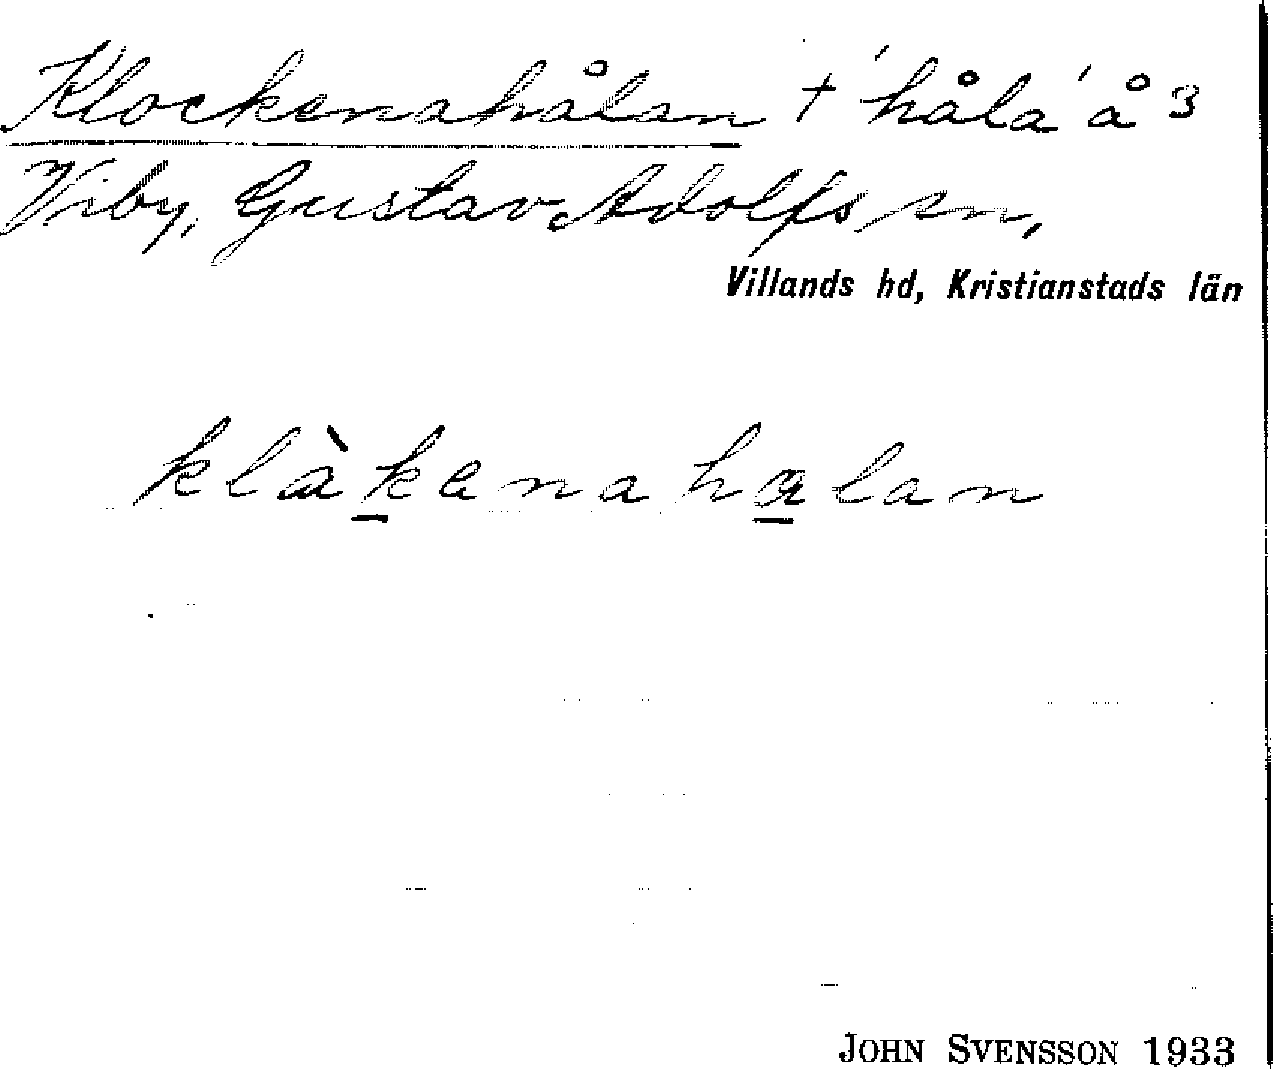 Klockenahålan + 'håla' å 3
Viby, Gustav Adolfs sn,
Villands hd, Kristianstads län
klàkenahalan
JOHN SVENSSON 1933